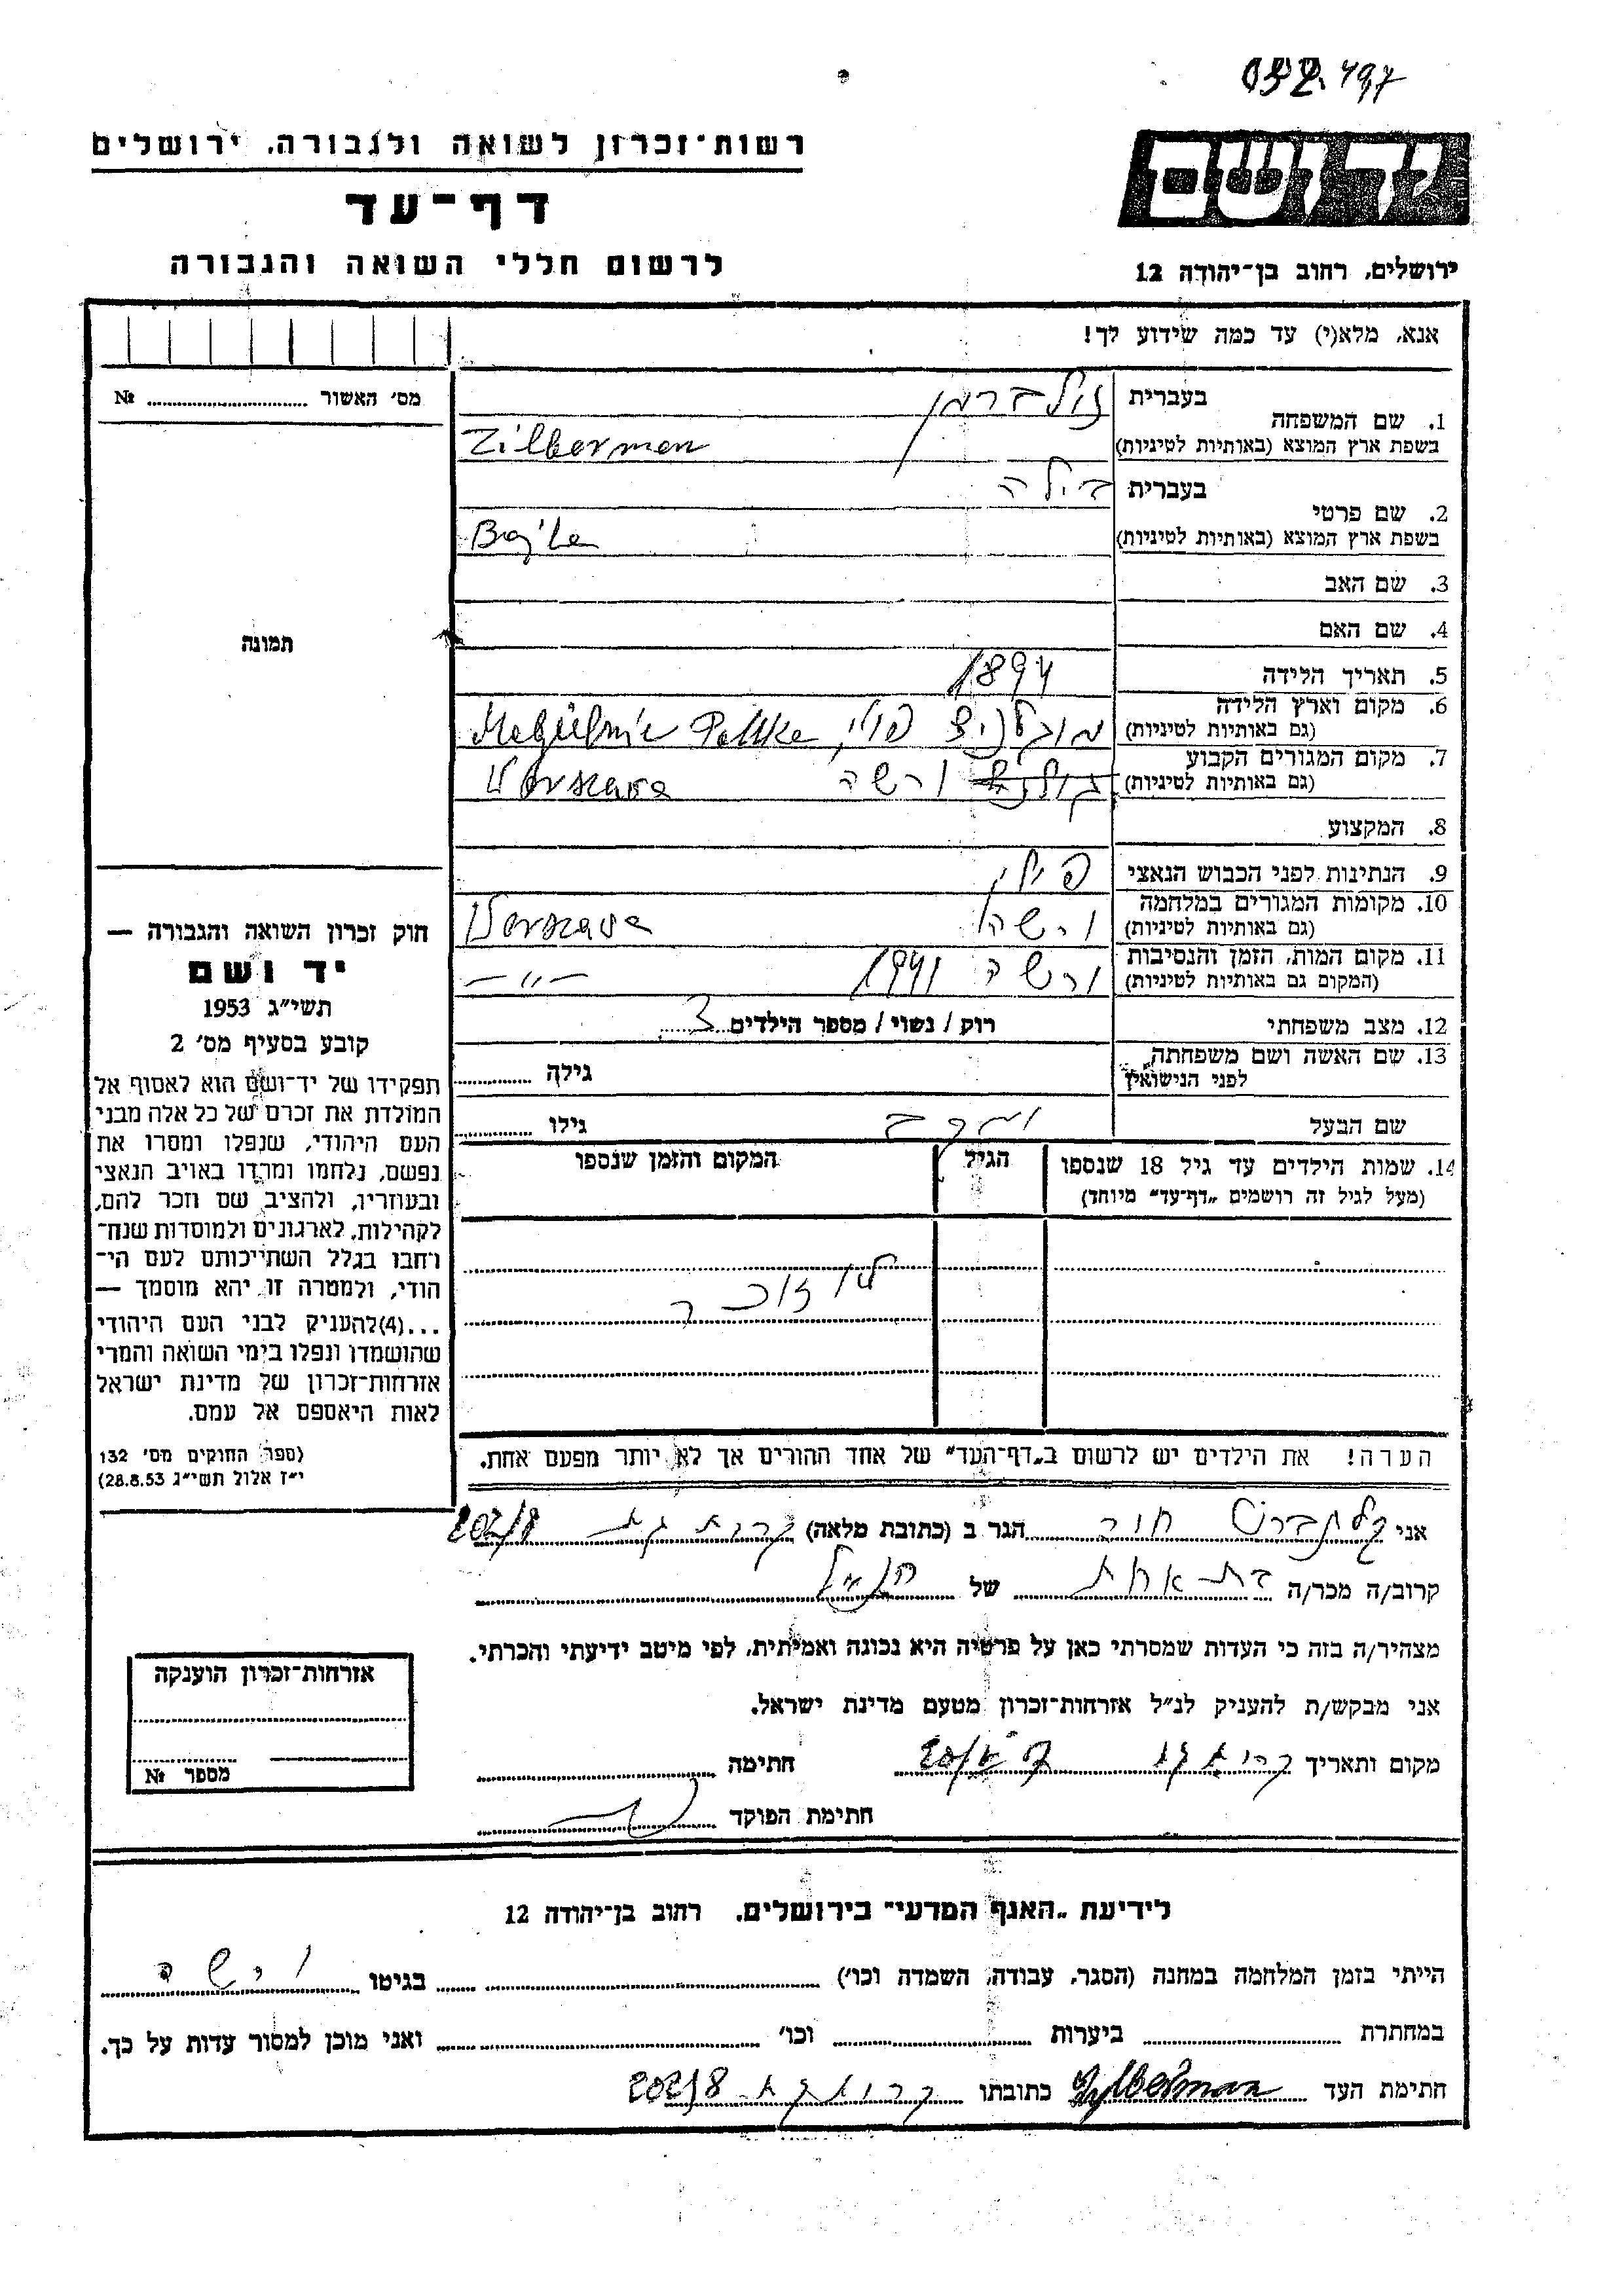 רשות-זכרון לשואה ולגבורה. ירושלים
דף-עד
לרשום חללי השואה והגבורה
יד ושם
ירושלים, רחוב בן-יהודה 12
אנא, מלא(י) עד כמה שידוע לך!
מס' האשור № 
תמונה
1. שם המשפחה
בעברית זילברמן
בשפת ארץ המוצא (באותיות לטיניות) Zilberman
2. שם פרטי
בעברית בילה
בשפת ארץ המוצא (באותיות לטיניות) Bajla
3. שם האב
4. שם האם
5. תאריך הלידה 1894
6. מקום וארץ הלידה
(גם באותיות לטיניות) מוגלניצ פולין Polska
7. מקום המגורים הקבוע
(גם באותיות לטיניות) ורשה Warszawa
8. המקצוע
9. הנתינות לפני הכבוש הנאצי פולין
10. מקומות המגורים במלחמה
(גם באותיות לטיניות) ורשה Warszawa
11. מקום המות, הזמן והנסיבות
(המקום גם באותיות לטיניות) ורשה 1941 -"-
12. מצב משפחתי רוק / נשוי / מספר הילדים 3
13. שם האשה ושם משפחתה
לפני הנישואין גילה
שם הבעל יעקב גילו
14. שמות הילדים עד גיל 18 שנספו הגיל המקום והזמן שנספו
(מעל לגיל זה רושמים "דף-עד" מיוחד)
לא זוכר
הערה! את הילדים יש לרשום ב"דף-העד" של אחד ההורים אך לא יותר מפעם אחת.
חוק זכרון השואה והגבורה —
יד ושם
תשי"ג 1953
קובע בסעיף מס' 2
תפקידו של יד-ושם הוא לאסוף אל
המולדת את זכרם של כל אלה מבני
העם היהודי, שנפלו ומסרו את
נפשם, נלחמו ומרדו באויב הנאצי
ובעוזריו, ולהציב שם וזכר להם,
לקהילות, לארגונים ולמוסדות שנח-
רחבו בגלל השתייכותם לעם הי-
הודי, ולמטרה זו יהא מוסמך —
...(4)להעניק לבני העם היהודי
שהושמדו ונפלו בימי השואה והמרי
אזרחות-זכרון של מדינת ישראל
לאות היאספם אל עמם.
(ספר החוקים מס' 132
י"ז אלול תשי"ג 28.8.53)
אני הגר ב (כתובת מלאה) קרית גת 202/8
קרוב/ה מכר/ה בת אחת של הנ"ל
מצהיר/ה בזה כי העדות שמסרתי כאן על פרטיה היא נכונה ואמיתית, לפי מיטב ידיעתי והכרתי.
אני מבקש/ת להעניק לנ"ל אזרחות-זכרון מטעם מדינת ישראל.
מקום ותאריך קרית גת חתימה
חתימת הפוקד
אזרחות-זכרון הוענקה
מספר №
לידיעת "האגף המדעי" בירושלים, רחוב בן-יהודה 12
הייתי בזמן המלחמה במחנה (הסגר, עבודה, השמדה וכו') בגיטו ורשה
במחתרת ביערות וכו' ואני מוכן למסור עדות על כך.
חתימת העד Zylberman כתובתו קרית גת 202/8